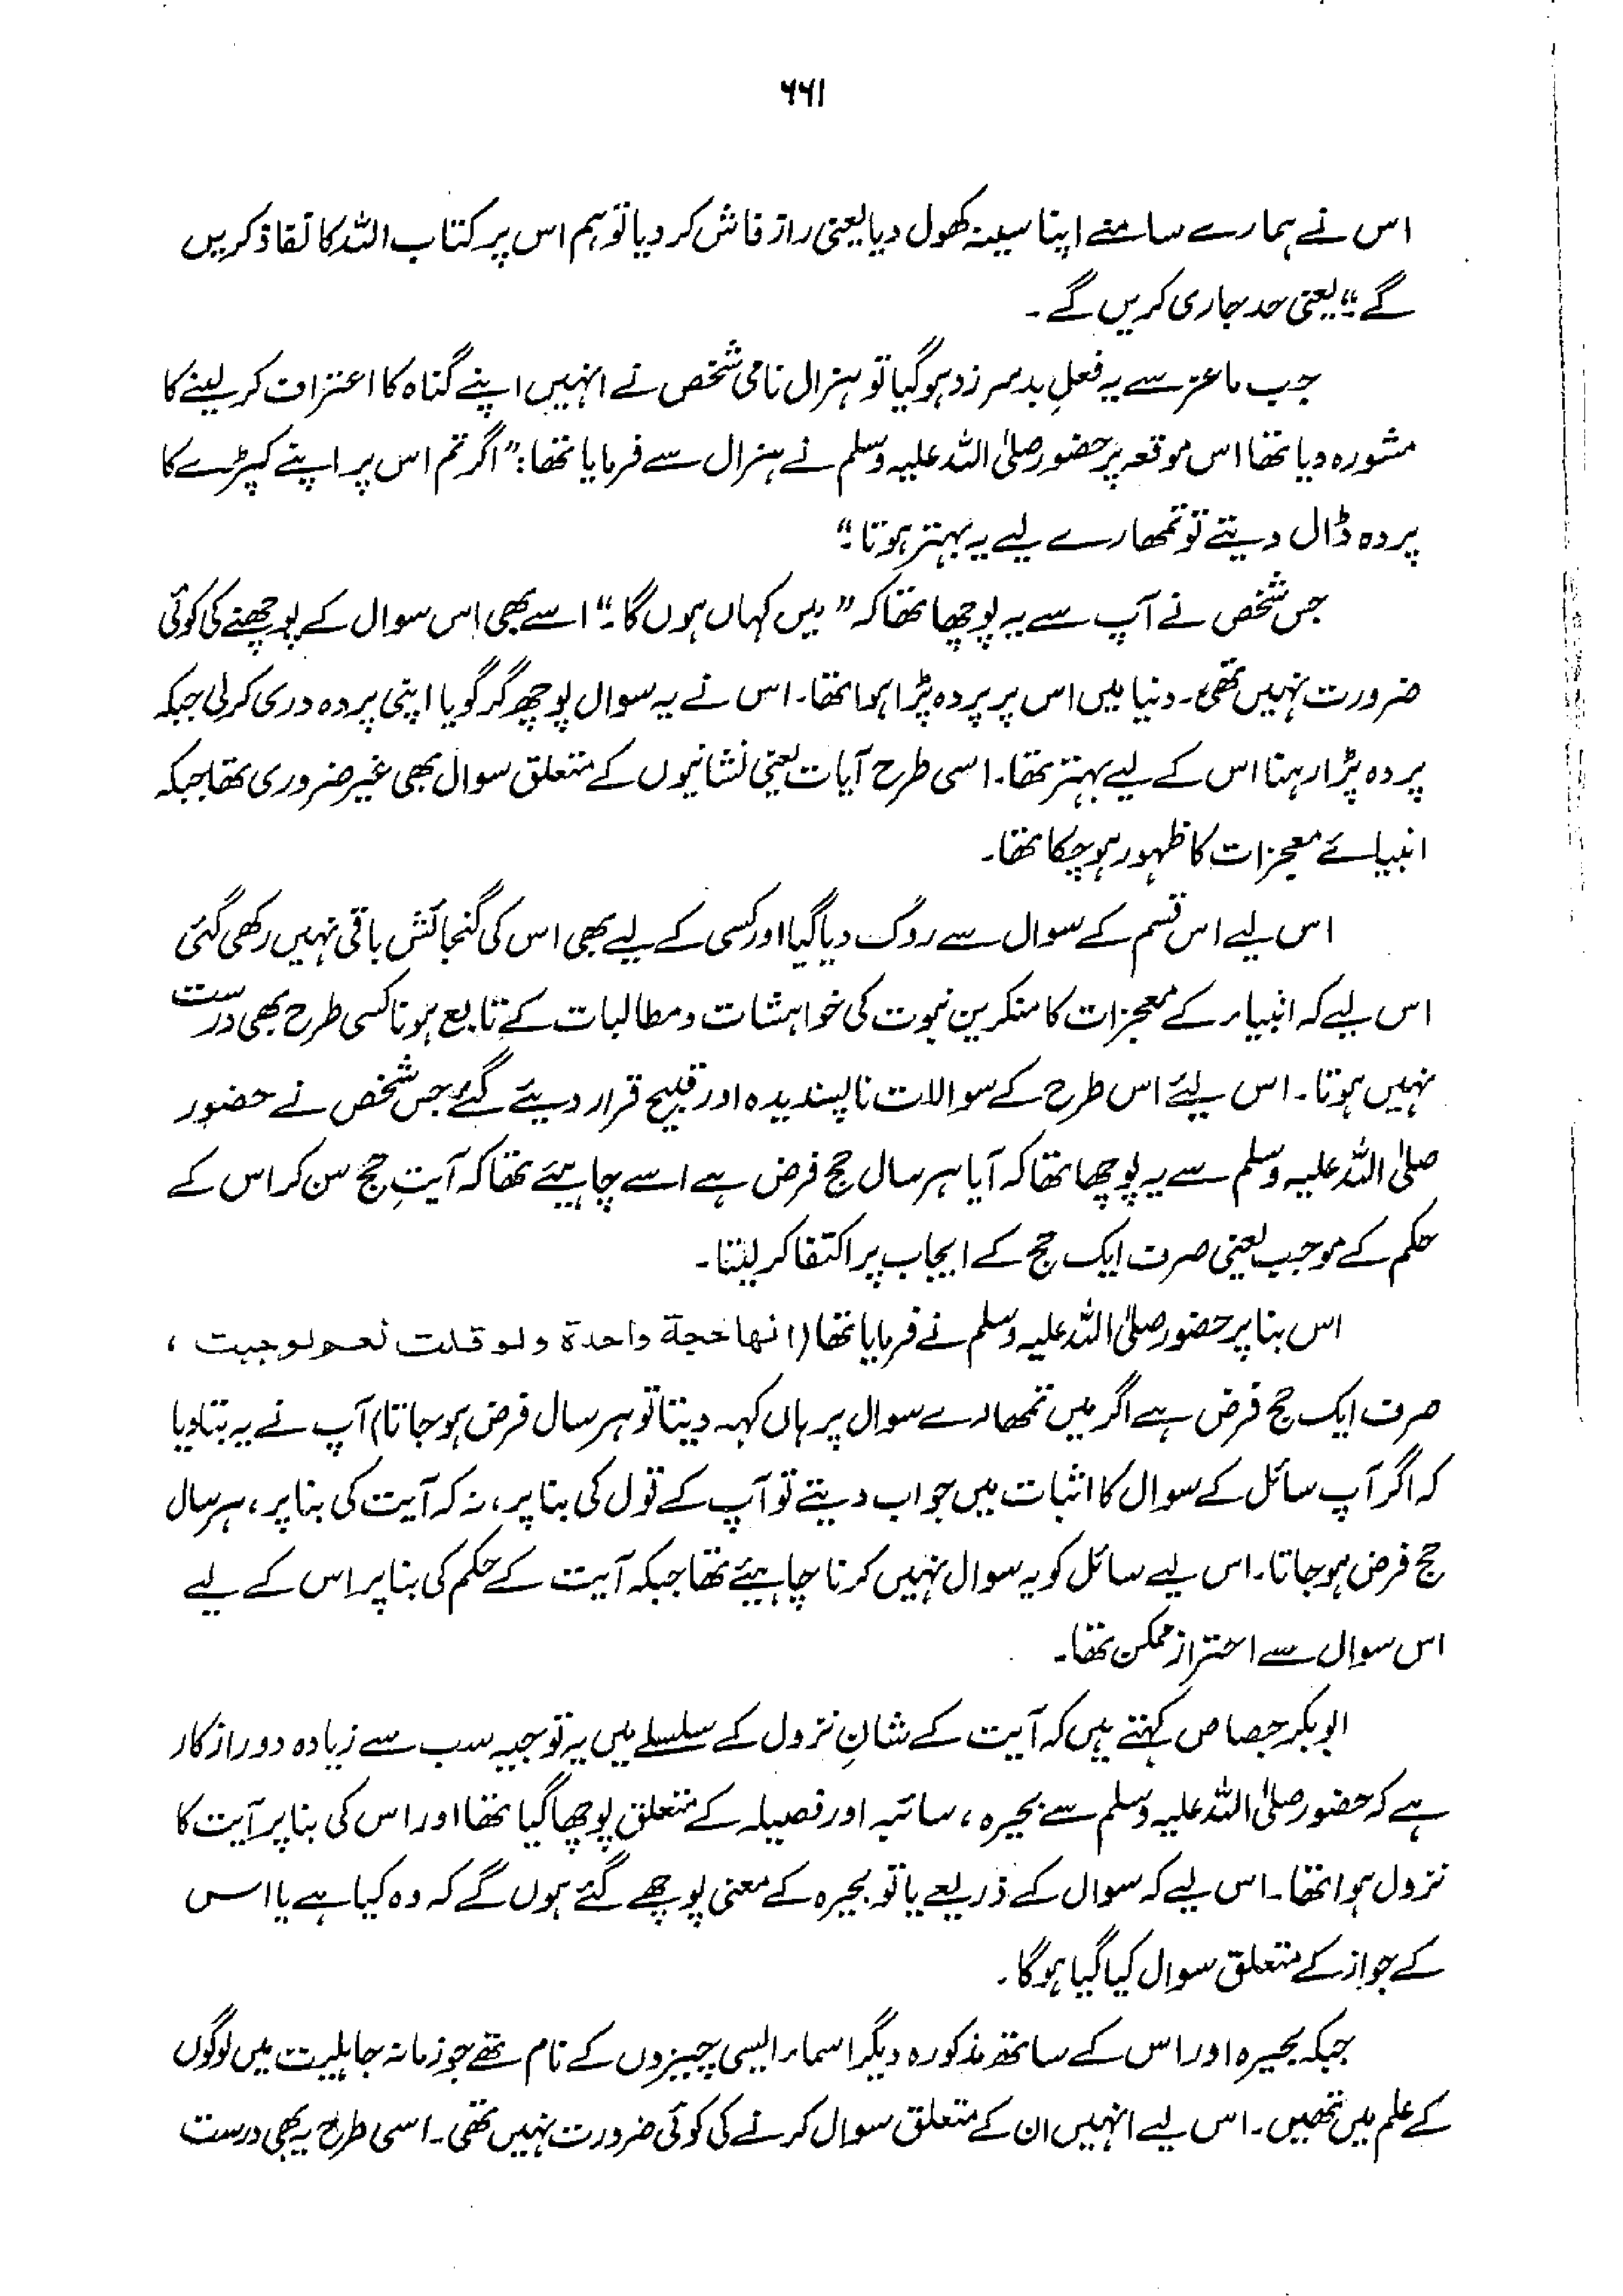 ۶۶۱
اس نے ہمارے سامنے اپنا سینہ کھول دیا یعنی راز فاش کر دیا تو ہم اس پر کتاب اللہ کا نفاذ کریں
گے ۔“ یعنی حد جاری کریں گے ۔
جب ماعز سے یہ فعلِ بد سرزد ہو گیا تو ہزال نامی شخص نے انہیں اپنے گناہ کا اعتراف کر لینے کا
مشورہ دیا تھا اس موقعہ پر حضور صلی اللہ علیہ وسلم نے ہزال سے فرمایا تھا: ”اگر تم اس پر اپنے کپڑے کا
پردہ ڈال دیتے تو تمھارے لیے یہ بہتر ہوتا ۔“
جس شخص نے آپ سے یہ پوچھا تھا کہ ” میں کہاں ہوں گا ۔“ اسے بھی اس سوال کے پوچھنے کی کوئی
ضرورت نہیں تھی ۔ دنیا میں اس پر پردہ پڑا ہوا تھا۔ اس نے یہ سوال پوچھ کر گویا اپنی پردہ دری کرلی جبکہ
پردہ پڑا رہنا اس کے لیے بہتر تھا۔ اسی طرح آیات یعنی نشانیوں کے متعلق سوال بھی غیر ضروری تھا جبکہ
انبیائے معجزات کا ظہور ہو چکا تھا۔
اس لیے اس قسم کے سوال سے روک دیا گیا اور کسی کے لیے بھی اس کی گنجائش باقی نہیں رکھی گئی
اس لیے کہ انبیاء کے معجزات کا منکرین نبوت کی خواہشات و مطالبات کے تابع ہونا کسی طرح بھی درست
نہیں ہوتا۔ اس لیئے اس طرح کے سوالات ناپسندیدہ اور قبیح قرار دیئے گئے جس شخص نے حضور
صلی اللہ علیہ وسلم سے یہ پوچھا تھا کہ آیا ہر سال حج فرض ہے اسے چاہیئے تھا کہ آیتِ حج سن کر اس کے
حکم کے موجب یعنی صرف ایک حج کے ایجاب پر اکتفا کر لیتا۔
اس بنا پر حضور صلی اللہ علیہ وسلم نے فرمایا تھا (انها حجة واحدة ولو قلت نعم لوجبت ،
صرف ایک حج فرض ہے اگر میں تمھارے سوال پر ہاں کہہ دیتا تو ہر سال فرض ہو جاتا) آپ نے یہ بتا دیا
کہ اگر آپ سائل کے سوال کا اثبات میں جواب دیتے تو آپ کے قول کی بنا پر، نہ کہ آیت کی بنا پر، ہر سال
حج فرض ہو جاتا۔ اس لیے سائل کو یہ سوال نہیں کرنا چاہیئے تھا جبکہ آیت کے حکم کی بنا پر اس کے لیے
اس سوال سے احتراز ممکن تھا۔
ابو بکر جصاص کہتے ہیں کہ آیت کے شانِ نزول کے سلسلے میں یہ توجیہ سب سے زیادہ دور از کار
ہے کہ حضور صلی اللہ علیہ وسلم سے بحیرہ، سائبہ اور فصیلہ کے متعلق پوچھا گیا تھا اور اس کی بنا پر آیت کا
نزول ہوا تھا۔ اس لیے کہ سوال کے ذریعے یا تو بحیرہ کے معنی پوچھے گئے ہوں گے کہ وہ کیا ہے یا اس
کے جواز کے متعلق سوال کیا گیا ہو گا ۔
جبکہ بحیرہ اور اس کے ساتھ مذکورہ دیگر اسماء ایسی چیزوں کے نام تھے جو زمانہ جاہلیت میں لوگوں
کے علم میں تھیں۔ اس لیے انہیں ان کے متعلق سوال کرنے کی کوئی ضرورت نہیں تھی۔ اسی طرح یہ بھی درست